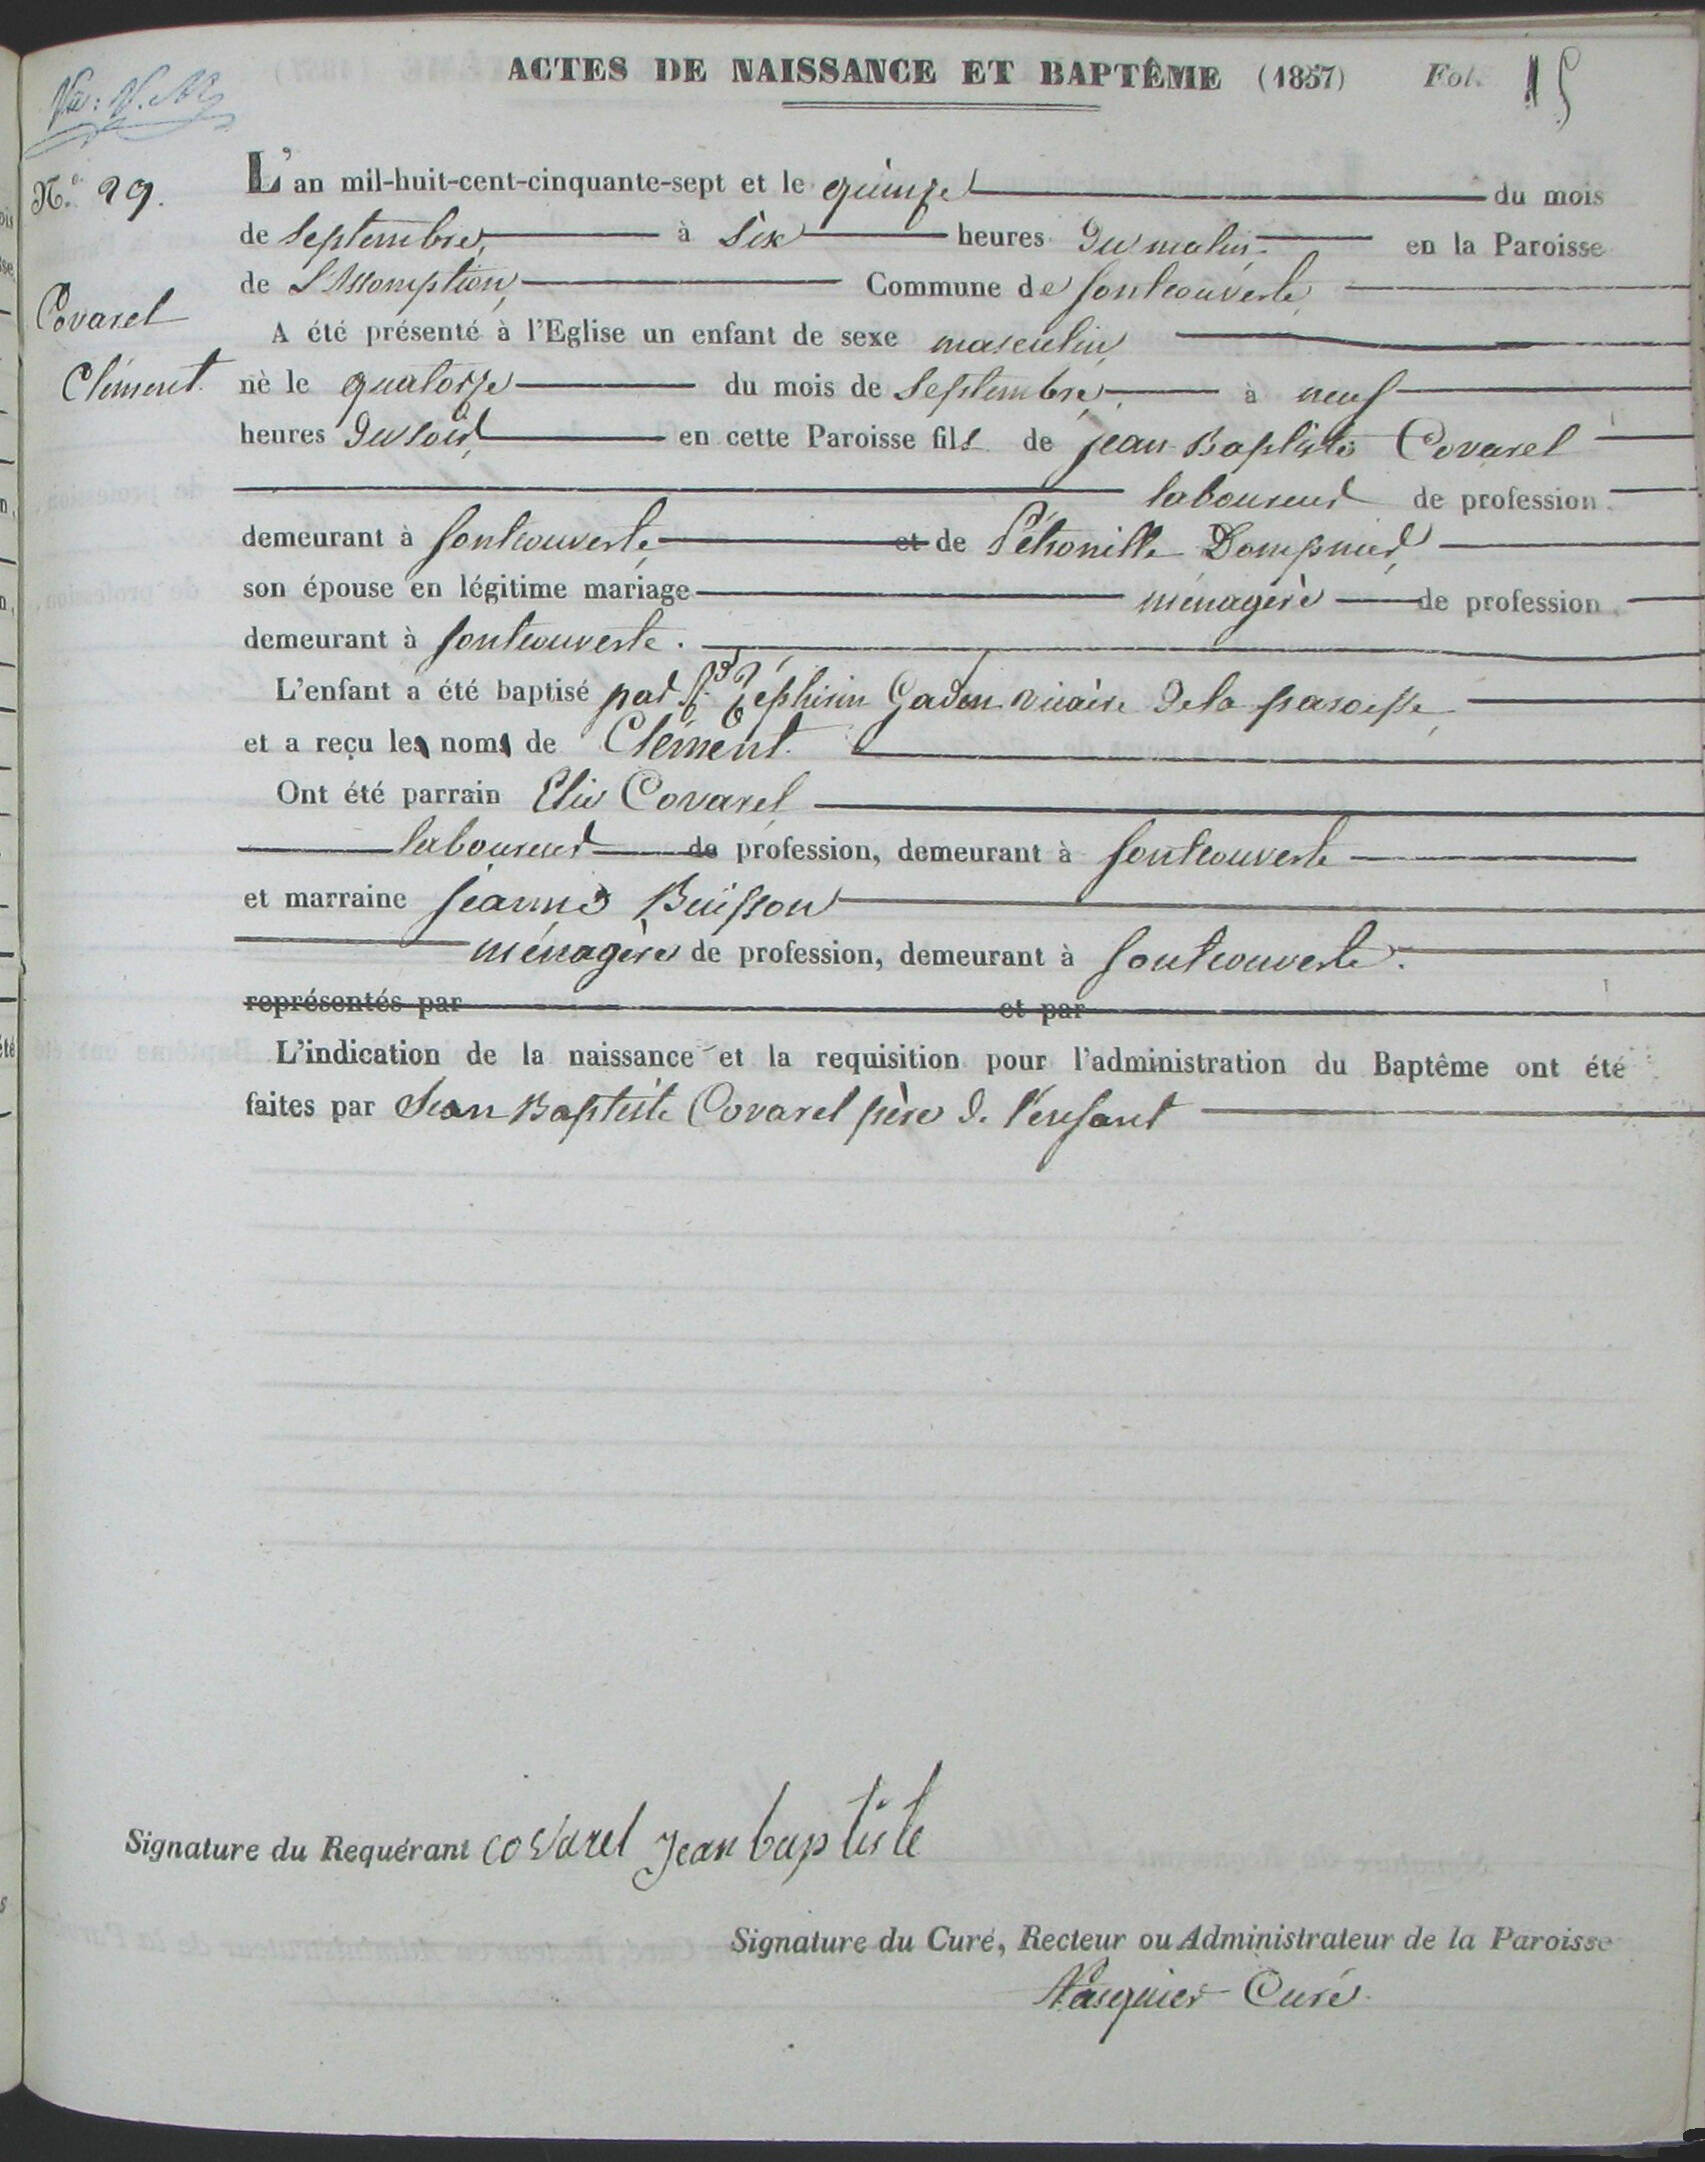 ACTES DE NAISSANCE ET BAPTÊME (1857) Fol. 15
Vu:
N.° 29.
Covarel
Clément.
L'an mil-huit-cent-cinquante-sept et le quinze du mois
de septembre, à six heures du matin en la Paroisse
de L'Assomption, Commune de fontcouverte,
A été présenté à l'Eglise un enfant de sexe masculin,
nè le quatorze du mois de septembre, à neuf
heures du soir, en cette Paroisse fils de jean-Baptiste Covarel
laboureur de profession,
demeurant à fontcouverte, et de Pétronille Dompnier,
son épouse en légitime mariage ménagère de profession,
demeurant à fontcouverte.
L'enfant a été baptisé par Zéphirin vicaire de la paroisse,
et a reçu les noms de Clément.
Ont été parrain Elie Covarel,
laboureur de profession, demeurant à fontcouverte
et marraine jeanne Buisson
ménagère de profession, demeurant à fontcouverte.
représentés par et par
L'indication de la naissance et la requisition pour l'administration du Baptême ont été
faites par Jean Baptiste Covarel père de l'enfant
Signature du Requérant covarel jean baptiste
Signature du Curé, Recteur ou Administrateur de la Paroisse
Curé